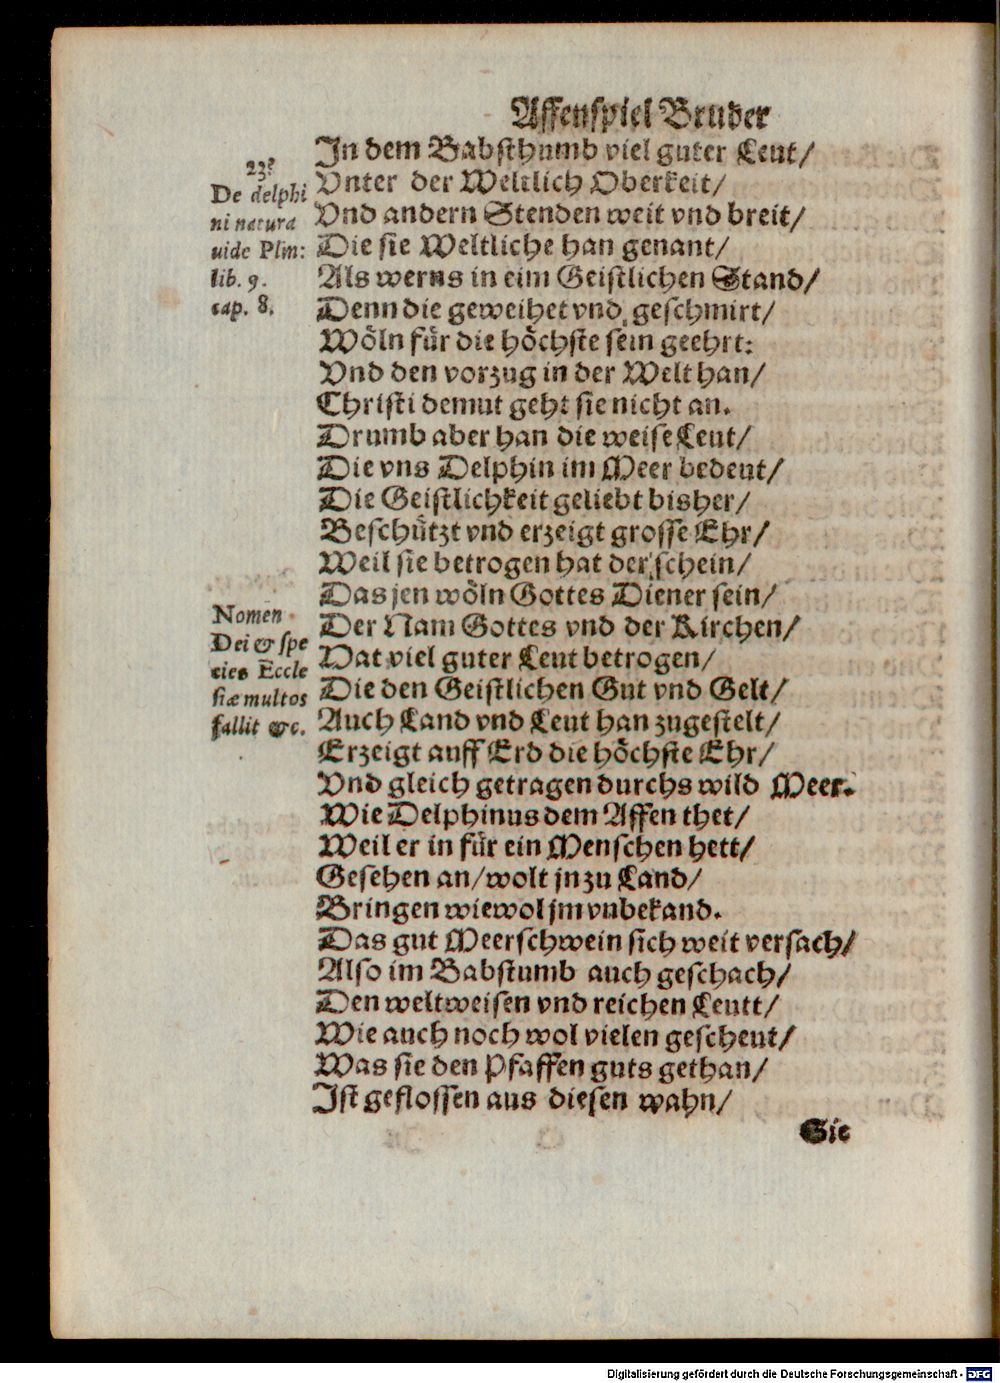 Affenspiel Bruder
In dem Babsthumb viel guter Leut/
Vnter der Weltlich Oberkeit/
Vnd andern Stenden weit vnd breit/
Die sie Weltliche han genant/
Als werns in eim Geistlichen Stand/
Denn die geweihet vnd geschmirt/
Wöln für die höchste sein geehrt:
Vnd den vorzug in der Welt han/
Christi demut geht sie nicht an.
Drumb aber han die weise Leut/
Die vns Delphin im Meer bedeut/
Die Geistlichkeit geliebt bisher/
Beschützt vnd erzeigt grosse Ehr/
Weil sie betrogen hat der schein/
Das jen wöln Gottes Diener sein/
Der Nam Gottes vnd der Kirchen/
Hat viel guter Leut betrogen/
Die den Geistlichen Gut vnd Gelt/
Auch Land vnd Leut han zugestelt/
Erzeigt auff Erd die höchste Ehr/
Vnd gleich getragen durchs wild Meer.
Wie Delphinus dem Affen thet/
Weil er in für ein Menschen hett/
Gesehen an/wolt jn zu Land/
Bringen wiewol jm vnbekand.
Das gut Meerschwein sich weit versach/
Also im Babstumb auch geschach/
Den weltweisen vnd reichen Leutt/
Wie auch noch wol vielen gescheut/
Was sie den Pfaffen guts gethan/
Ist geflossen aus diesen wahn/
Sie
De delphi
ni natura
uide Plin:
lib. 9.
cap. 8.
Nomen
Dei & spe
cies Eccle
siæ multos
fallit &c.
Digitalisierung gefördert durch die Deutsche Forschungsgemeinschaft - DFG